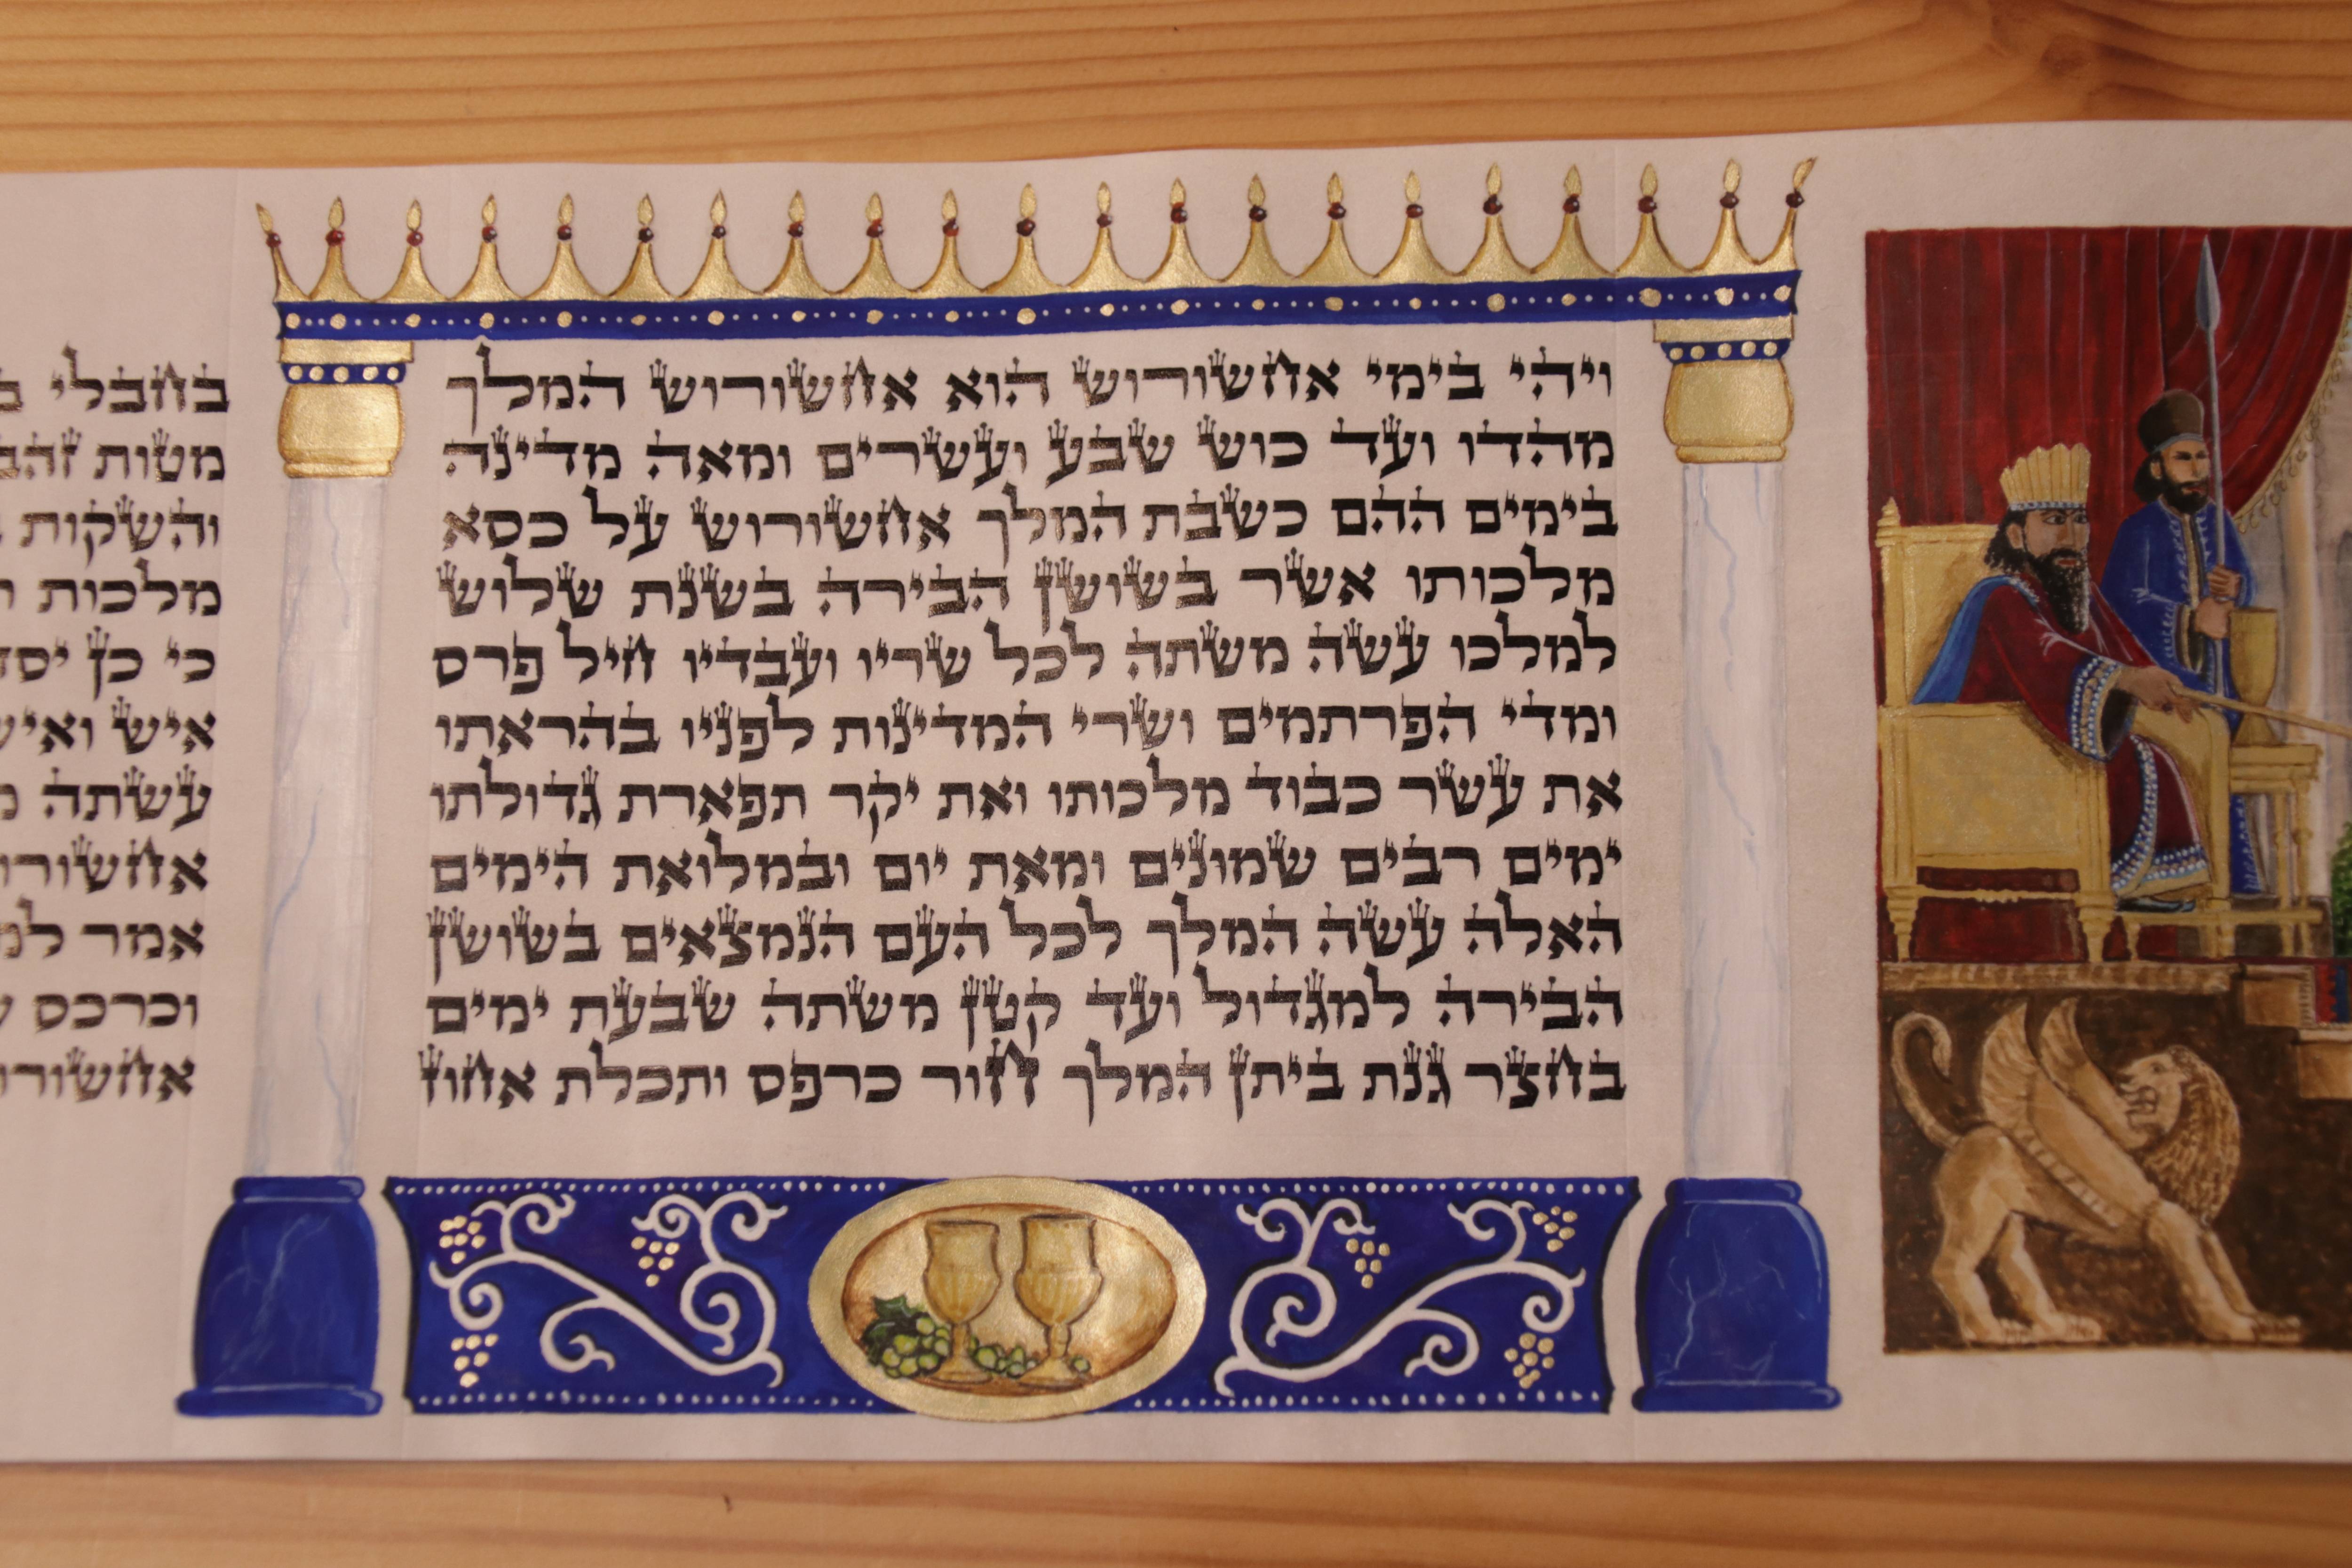 ויהי בימי אחשורוש הוא אחשורוש המלך
מהדו ועד כוש שבע ועשרים ומאה מדינה
בימים ההם כשבת המלך אחשורוש על כסא
מלכותו אשר בשושן הבירה בשנת שלוש
למלכו עשה משתה לכל שריו ועבדיו חיל פרס
ומדי הפרתמים ושרי המדינות לפניו בהראתו
את עשר כבוד מלכותו ואת יקר תפארת גדולתו
ימים רבים שמונים ומאת יום ובמלואת הימים
האלה עשה המלך לכל העם הנמצאים בשושן
הבירה למגדול ועד קטן משתה שבעת ימים
בחצר גנת ביתן המלך חור כרפס ותכלת אחוז
בחבלי
מטות זהב
והשקות
מלכות
כי כן
איש
עשתה
אמר
וכרכס